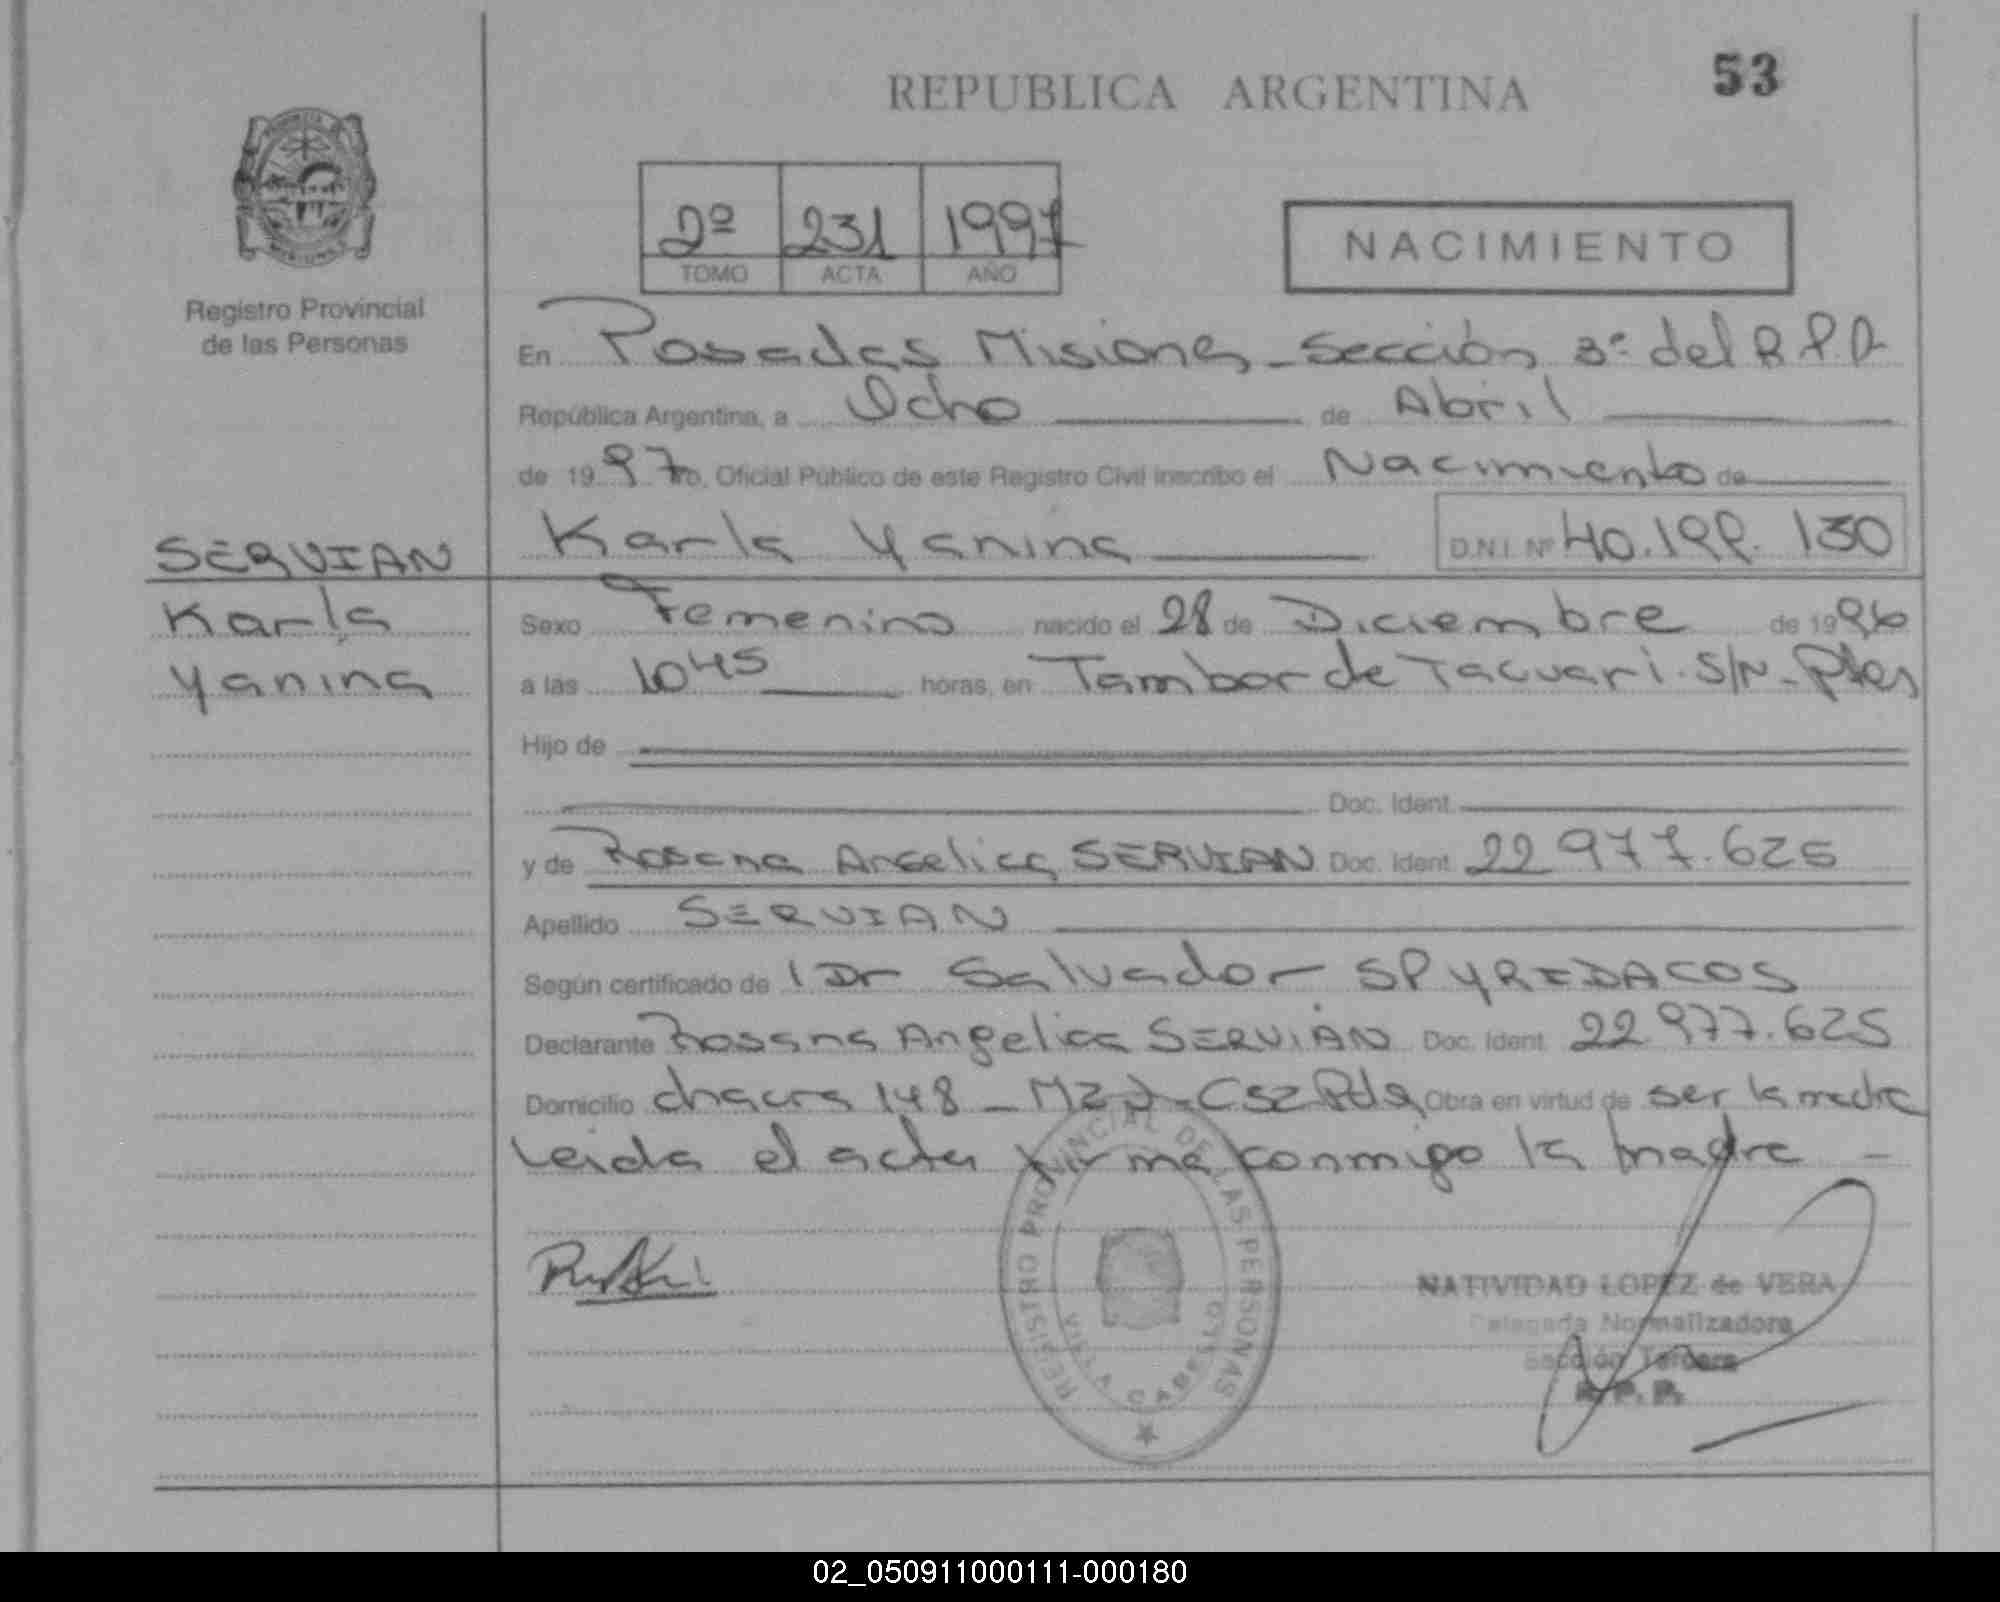 REPUBLICA ARGENTINA
53
2º 231 1997
TOMO ACTA AÑO
NACIMIENTO
Registro Provincial
de las Personas
En Posadas Misiones - Sección 3º del R.P.P
República Argentina, a Ocho de Abril
de 1997 yo, Oficial Público de este Registro Civil inscribo el Nacimiento de
Karla Yanina D.N.I. Nº 40.199.130
SERVIAN
Karla
Yanina
Sexo Femenino nacido el 28 de Diciembre de 1996
a las 1045 horas, en Tambor de Tacuari S/N - Pdas
Hijo de
Doc. Ident.
y de Rosana Angelica SERVIAN Doc. Ident. 22977.625
Apellido SERVIAN
Según certificado de Dr Salvador SPYREDACOS
Declarante Rosana Angelica SERVIAN Doc. Ident. 22.977.625
Domicilio chacra 148 - Mz J - Cs2 Pdas Obra en virtud de ser la madre
Leida el acta firma conmigo la madre -
REGISTRO PROVINCIAL DE LAS PERSONAS
VILLA CABELLO
NATIVIDAD LOPEZ de VERA
Delegada Normalizadora
Sección Tercera
R. P. P.
02_050911000111-000180